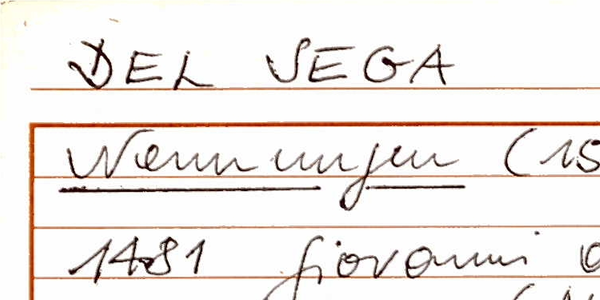 DEL SEGA
Nennungen (15
1481 Giovanni d